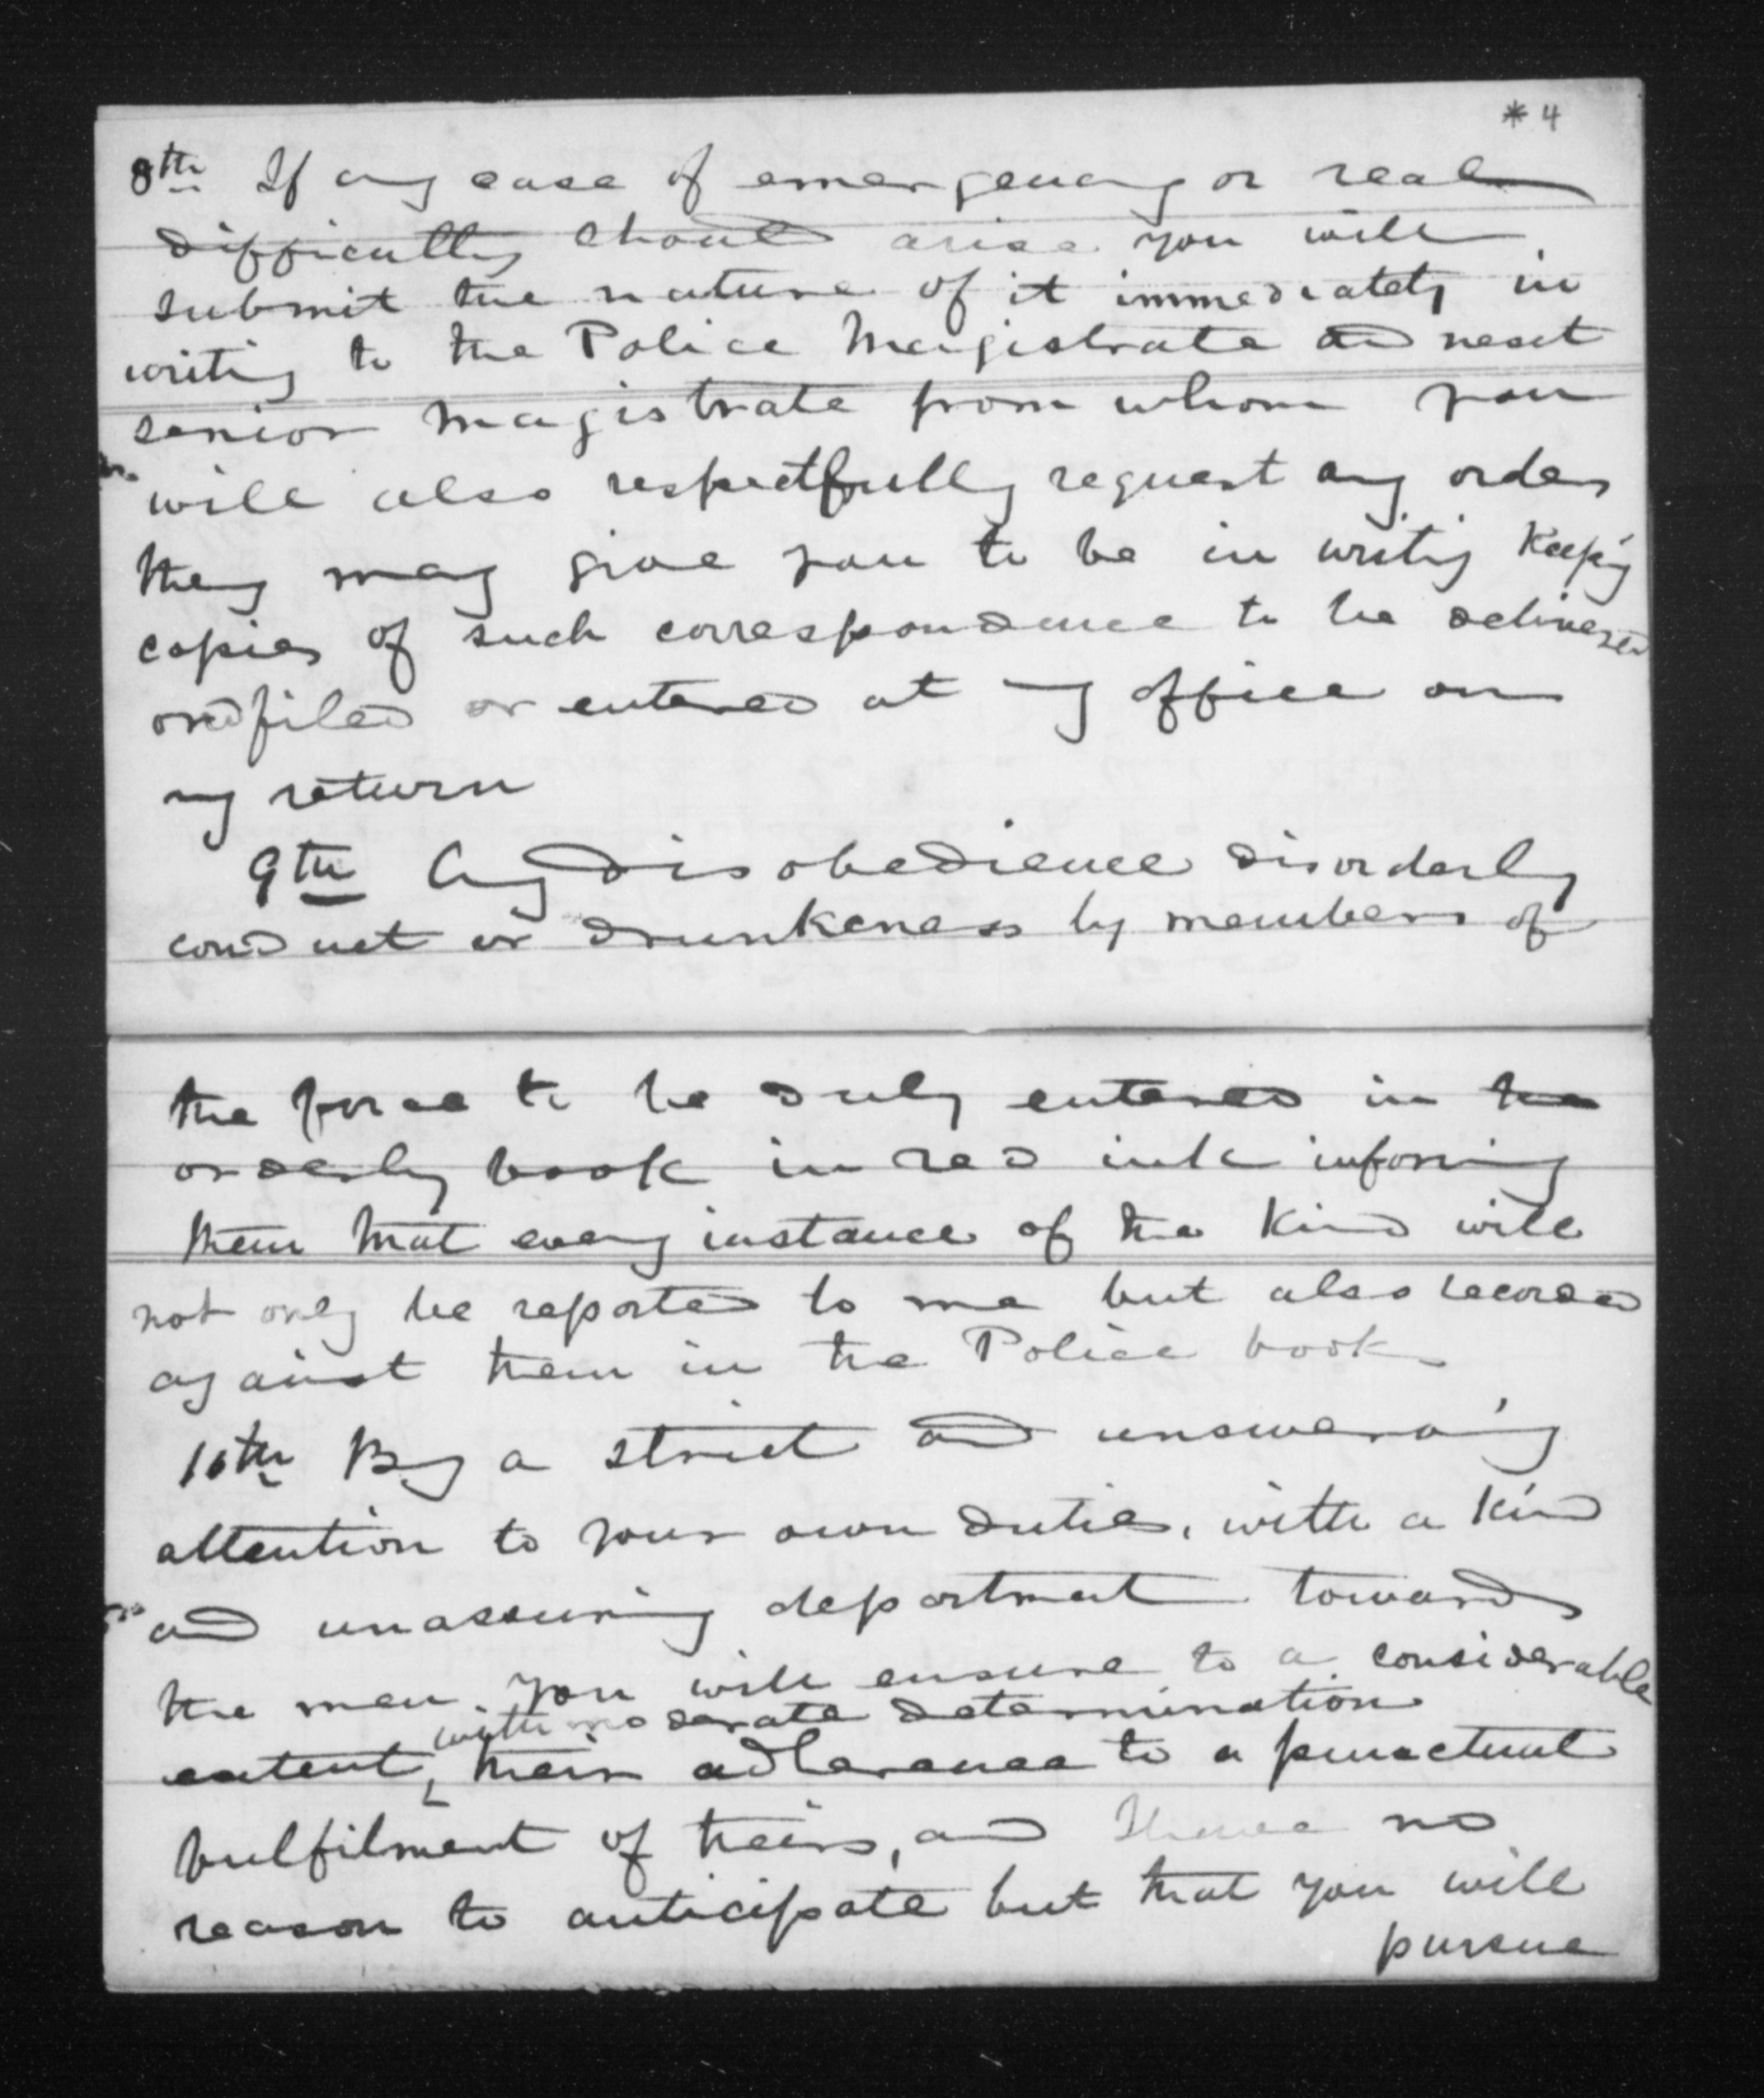 * 4
8th If any case of emergency or real
difficulty should arise you will
submit the nature of it immediately in
writing to the Police Magistrate and next
senior magistrate from whom you
will also respectfully request any orders
they may give you to be in writing keep'g
copies of such correspondence to be delivered
and filed or entered at my office on
my return
9th Any disobedience disorderly
conduct or drunkeness by members of
the force to be duly entered in the
orderly book in red ink informing
them that every instance of the kind will
not only be reported to me but also recorded
against them in the Police book
10th By a strict and unswerving
attention to your own duties, with a kind
and unassuming deportment towards
the men. you will ensure to a considerable
with moderate determination
extent, their adherence to a punctual
fulfilment of theirs, and I have no
reason to anticipate but that you will
pursue